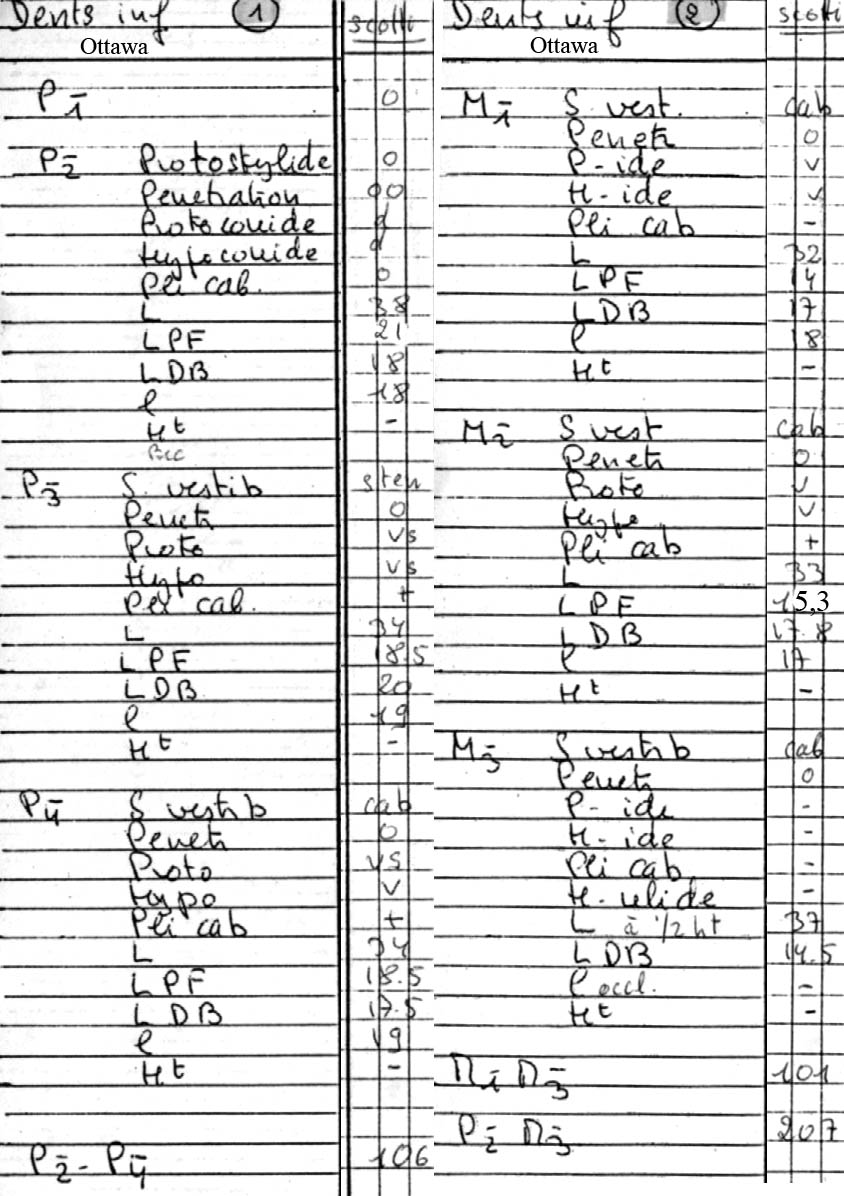 Dents inf 1 scotti
Ottawa
P1 0
P2 Protostylide 0
Penetration 00
Protoconide d
Hypoconide d
Pli cab. 0
L 38
LPF 21
LDB 18
l 18
Ht -
P3 S. vestib sten
Penetr 0
Proto vs
Hypo vs
Pli cab. +
L 34
LPF 18.5
LDB 20
l 19
Ht -
P4 S vestib cab
Penetr 0
Proto vs
Hypo v
Pli cab +
L 34
LPF 18.5
LDB 17.5
l 19
Ht -
P2 - P4 106
Dents inf 2 scotti
Ottawa
M1 S vest. cab
Penetr 0
P-ide v
H-ide v
Pli cab -
L 32
LPF 14
LDB 17
l 18
Ht -
M2 S vest cab
Penetr 0
Proto v
Hypo v
Pli cab +
L 33
LPF 15,3
LDB 17.8
l 17
Ht -
M3 S vestib cab
Penetr 0
P-ide -
H-ide -
Pli cab -
H-ulide -
L à 1/2 ht 37
LDB 14.5
l occl. -
Ht -
M1 M3 101
P2 M3 207